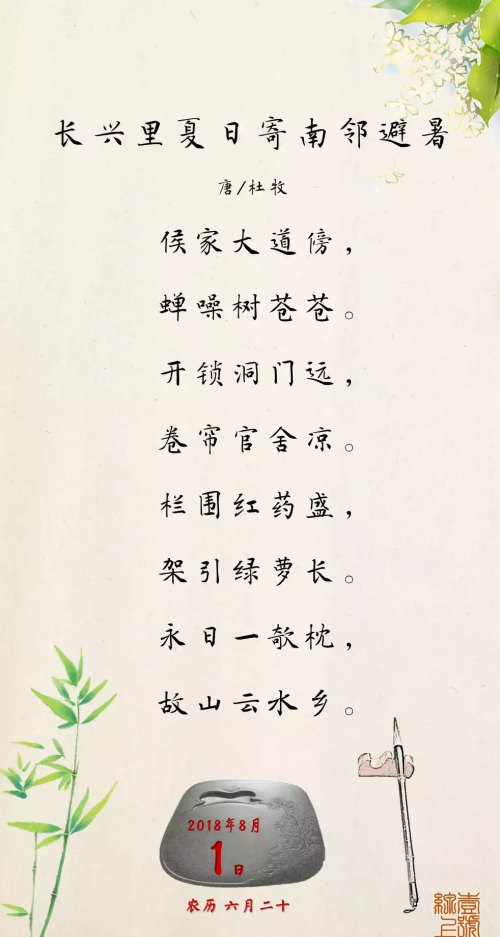 长兴里夏日寄南邻避暑
唐/杜牧
侯家大道傍，
蝉噪树苍苍。
开锁洞门远，
卷帘官舍凉。
栏围红药盛，
架引绿萝长。
永日一欹枕，
故山云水乡。
2018年8月
1日
农历 六月二十